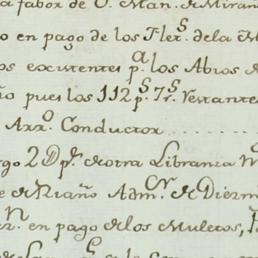 a fabor de D. Man. de Miran
o en pago de los Flet.s dela M
os existentes p.a los Abios d
ño pues los 112 p.s 7 r.s restantes
Arr.o Conductor
rgo 2D p.s de otra Librania
e de Riaño Adm.or de Diezm
en pago de los Muletos,